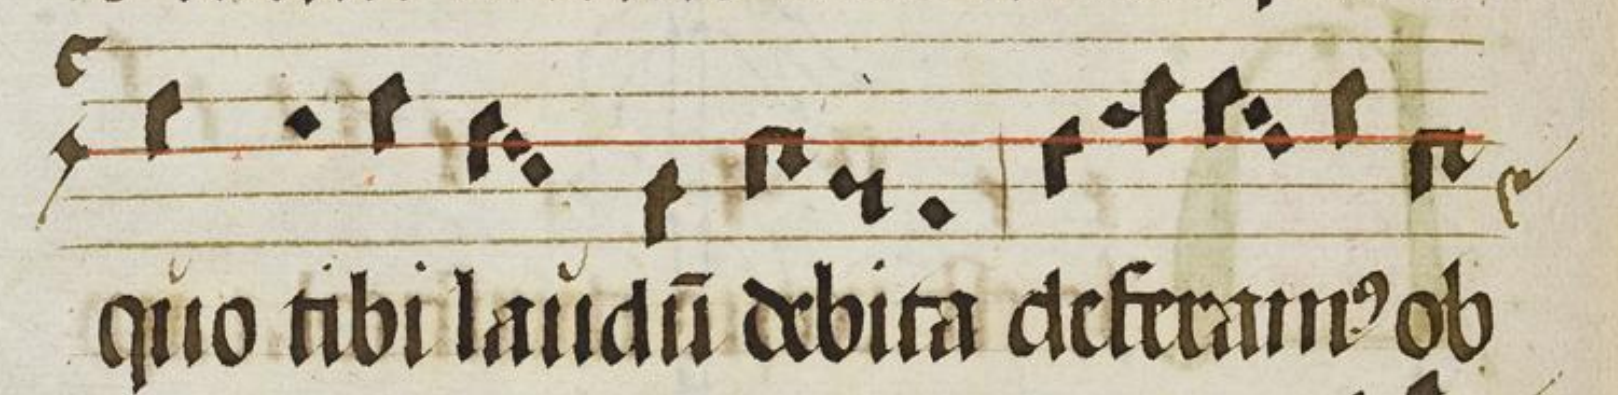 quo tibi laudū debita deferamꝰ ob